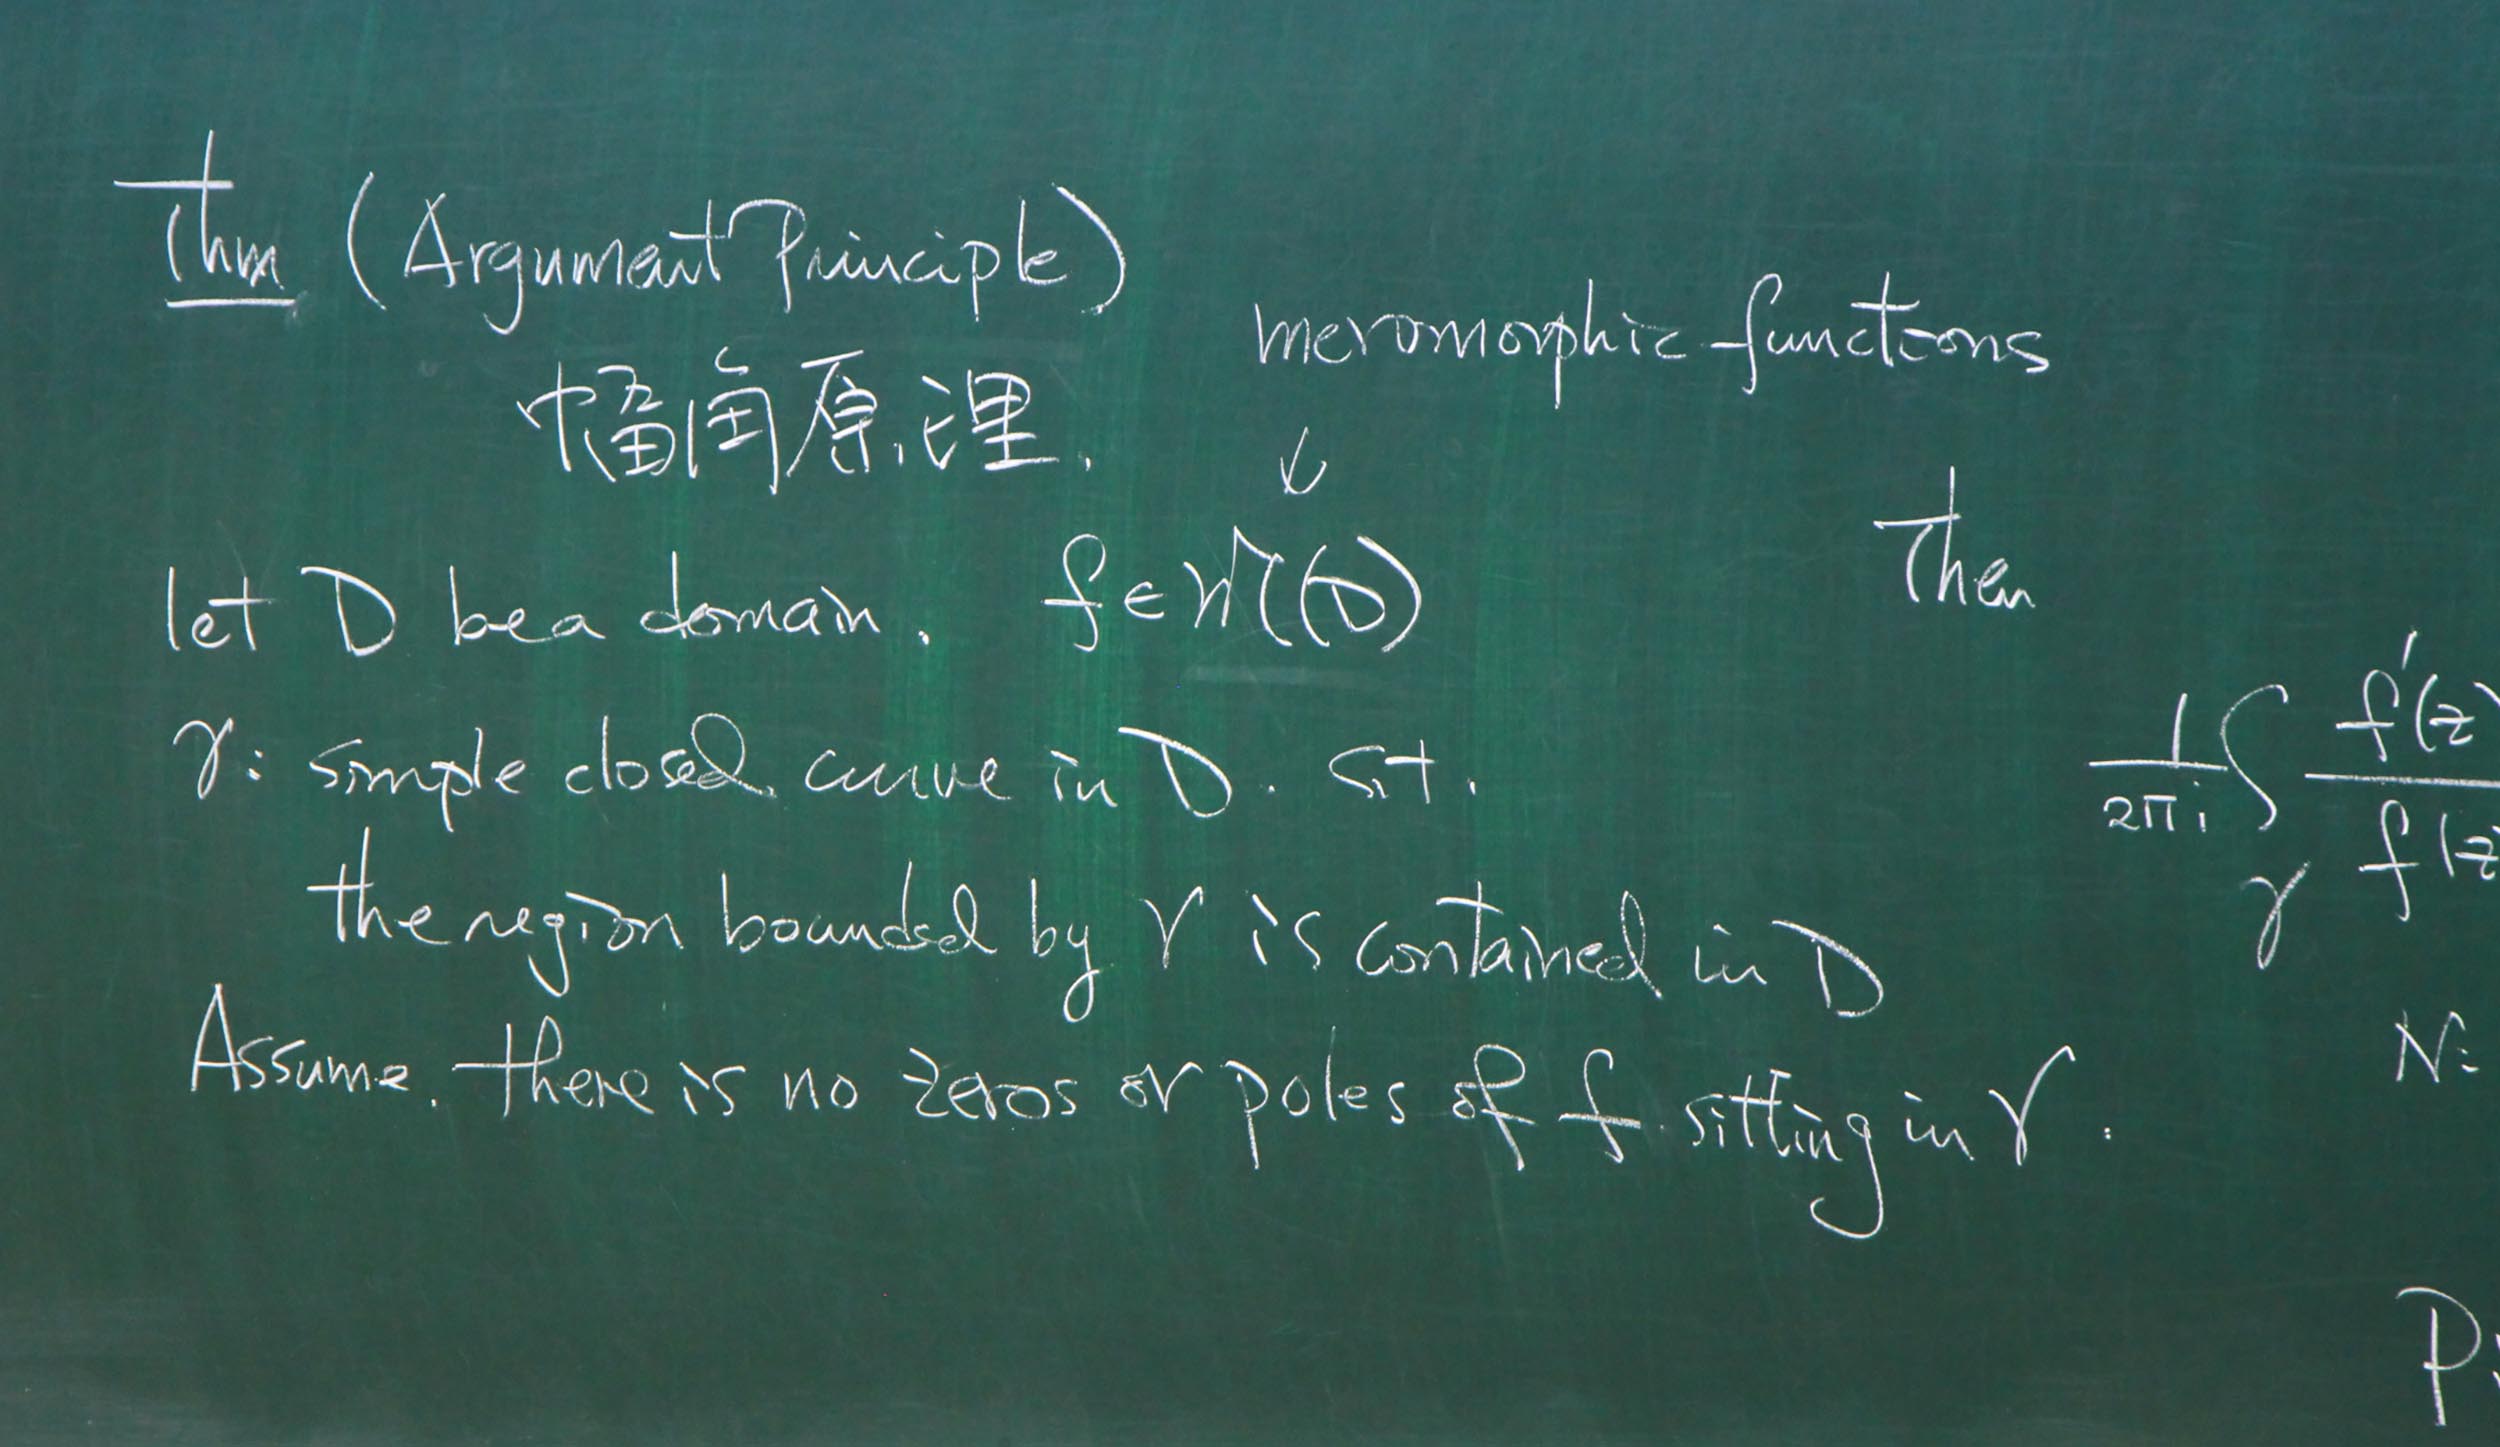 Thm (Argument Principle)
幅角原理.
meromorphic functions
↓
let D be a domain. f ∈ M(D)
γ: simple closed curve in D. s.t.
the region bounded by γ is contained in D
Assume. there is no zeros or poles of f sitting in γ.
Then
1/2πi ∫γ f'(z / f(z
N:
P: